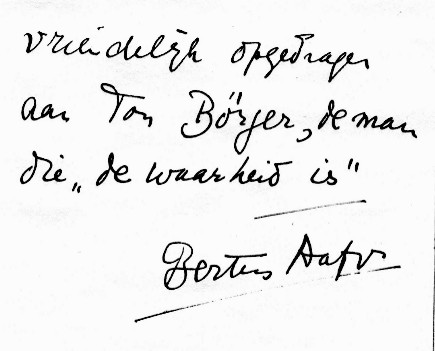 vriendelijk opgedragen
aan Ton Börger, de man
die „de waarheid is"
Bertus Aafjes